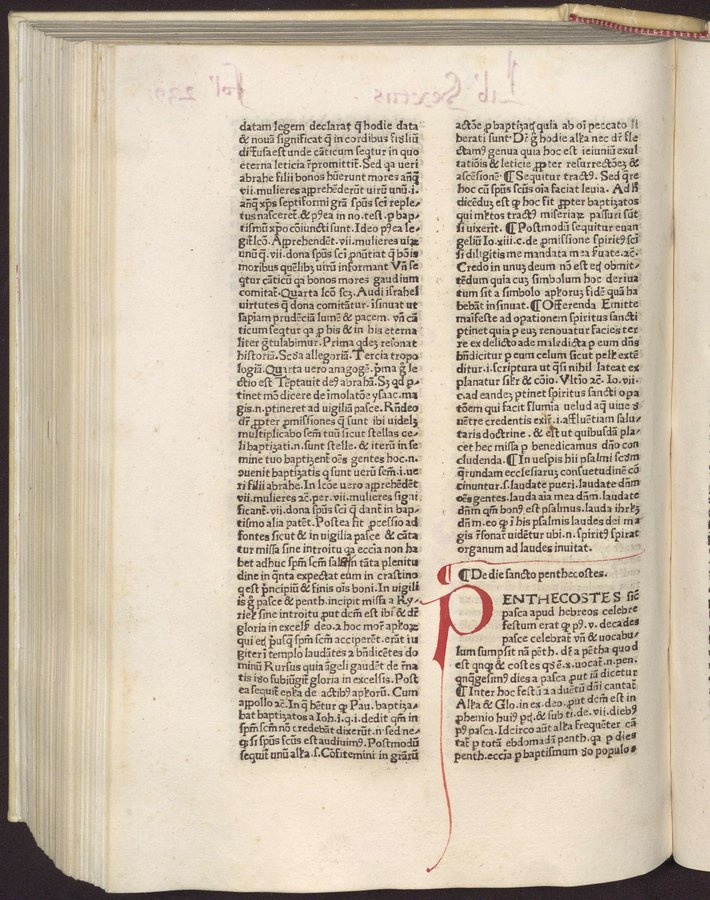 datam legem declarat q̄ hodie data
& nouā significat q̄ in cordibus fiſliū
diffusa est unde cāticum seqtur in quo
eterna leticia r̄promittit̄. Sed qa ueri
abrahe filii bonos hūerunt mores añq̄
vii. mulieres app̄hēderūt uirū unū .i.
anq̄ xp̄s septiformi grā sp̄us sc̄i reple-
tus nasceret̄. & p9ea in no. test. p bap-
tismū xp̄o cōiuncti sunt. Ideo p9ea le-
git̄ lcō. App̄hendēt .vii. mulieres uiz
unū q̄ .vii. dona sp̄us sc̄i p̄nūtiat q̄ bōis
moribus quēlibz uirū informant Vñ se
qtur cāticū qa bonos mores gaudium
comitat̄. Quarta lcō scz. Audi israhel
virtutes q̄ dona comitātur. īsinuat ut
sapiam prudēciā lumē & pacem. vñ cā
ticum seqtur qa p his & in his eterna
liter g̃tulabimur. Prima qdez resonat
historiā. Scda allegoriā. Tercia tropo
logiā. Quarta uero anagogē. p̄ma g̊ le
ctio est Tēptauit de9 abrahā. Sz qd p-
tinet mō dicere de īmolatōe ysaac. ma
gis .n. ptineret ad uigiliā pasce. Rñdeo
dr̄ ppter pmissiones q̄ sunt ibi uidelz
multiplicabo sem̄ tuū sicut stellas ce-
li baptizati .n. sunt stelle. & iterū in se
mine tuo baptizent̄ oēs gentes hoc .n.
ouenit baptizatis q̄ sunt uerū sem̄ .i. ue
ri filii abrahe. In lcōe uero app̄hēdēt
vii. mulieres 2c̄. per .vii. mulieres signi
ficant̄ .vii. dona sp̄us sc̄i q̄ dant̄ in bap-
tismo alia patēt. Postea fit pcessio ad
fontes sicut & in uigilia pasce & cāta
tur missa sine introitu qa eccīa non ha
bet adhuc sp̄m sc̄m in tāta plenitu
dine in q̄nta expectat eum in crastino
q est p̄ncipiū & finis oīs boni. In uigili
is g̊ pasce & penth. incipit missa a Ky-
riel̄ sine introitu. put dc̄m est ibi & dr̄
gloria in excels̄ deo. 2 hoc mor̄ ap̄loꝝ
qui eq̄ p̄usq̄ sp̄m sc̄m acciperēt. erāt iu
giter ī templo laudātes 2 bn̄dicētes do
minū Rursus quia āgeli gaudēt de r̄na
tis iō subiūgit̄ gloria in excelsis. Post
ea sequit̄ ep̄la de actib9 ap̄loꝝ. Cum
appollo 2c̄. In q̄ hētur q̄ Pau. baptiza-
bat baptizatos a Ioh. i. q. i. dedit qm̄ in
sp̄m sc̄m nō credebāt dixerūt. n. sed ne-
q̨ si sp̄us sc̄us est audiuim9. Postmodū
sequit̄ unū all̄a. s. Cōfitemini in grārū
actōe p baptizaꝝ quia ab oī peccato li
berati sunt. Dr̄ g̊ hodie all̄a nec dr̄ fle
ctam9 genua quia hoc est ieiuniū exul
tatiōis & leticie ppter resurrectōez &
ascēsionē. ¶ Sequitur tract9. Sed q̄re
hoc cū sp̄us sc̄us oīa faciat leuia. Ad
dicēduz est q̄ hoc fit ppter baptizatos
qui m̄ltos tract9 miseriaꝝ passuri sūt
si uixerīt. ¶ Postmodū sequitur euan
geliū Io. xiii. c. de pmissione spirit9 sc̄i
si diligitis me mandata mea s̄uate. 2c̄.
Credo in unuz deum nō est eq̄ obmit-
tēdum quia cuz simbolum hoc deriua
tum sit a simbolo ap̄loruz fidē quā ha
bebāt insinuat. ¶ Offerenda Emitte
maīfeste ad opationem spiritus sancti
ptinet quia p euz renouatur facies ter
re ex delicto ade maledicta p eum dn̄s
bn̄dicitur p eum celum sicut pell̄ extē
ditur. i. scriptura ut q̄si nihil lateat ex
planatur sil̄r & cōio. Vltīo 2c̄. Io. vii.
c. ad eandez ptinet spiritus sancti opa
tōem qui facit flumīa uelud aq̄ uiue d̄
uētre credentis exir̄. i. affluētiam salu-
taris doctrine. & est ut quibusdā pla-
cet hec missa p benedicamus dn̄o con
cludenda. ¶ In uespis hii psalmi scdm
q̄rundam ecclesiaruz consuetudinē cō
cinuntur. s. laudate pueri. laudate dn̄m
oēs gentes. lauda aīa mea dn̄m. laudate
dn̄m qm̄ bon9 est psalmus. lauda ihrl̄z
dn̄m. eo q̄ ī his psalmis laudes dei ma
gis r̄sonar̄ uidētur ubi. n. spirit9 spirat
organum ad laudes inuitat.
¶ De die sancto penthecostes.
PENTHECOSTES siē
pasca apud hebreos celebre
festum erat q̄ p9. v. decades
pasce celebrat̄ vñ & uocabu-
lum sumpsit nā pēth. dr̄ a pētha quod
est qnq̨ & costes qd̄ ē. x. uocat̄. n. pen.
qnq̄gesim9 dies a pasca put iā dicetur
¶ Inter hoc festū 2 aduētū dn̄i cantat̄
All̄a & Glo. in ex. deo. put dc̄m est in
phemio hui9 pd̄. & sub ti. de. vii. dieb9
p9 pasca. Idcirco aūt all̄a freq̄uēter cā
tat̄ p totā ebdomadā penth. qa p dies
penth. eccīa p baptismum do populo